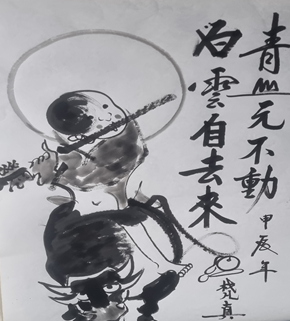 青山元不動
白雲自去來
甲辰年
梵真